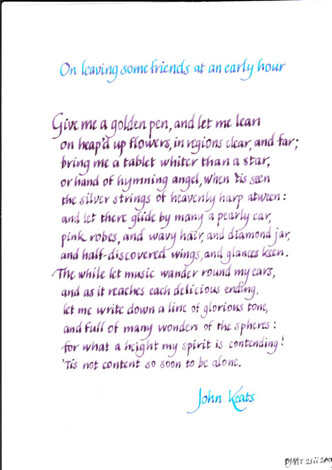 On leaving some friends at an early hour
Give me a golden pen, and let me lean
on heap'd up flowers, in regions clear, and far;
bring me a tablet whiter than a star,
or hand of hymning angel, when 'tis seen
the silver strings of heavenly harp atween:
and let there glide by many a pearly car,
pink robes, and wavy hair, and diamond jar,
and half-discovered wings, and glances keen.
The while let music wander round my ears,
and as it reaches each delicious ending,
let me write down a line of glorious tone,
and full of many wonders of the spheres:
for what a height my spirit is contending!
'Tis not content so soon to be alone.
John Keats